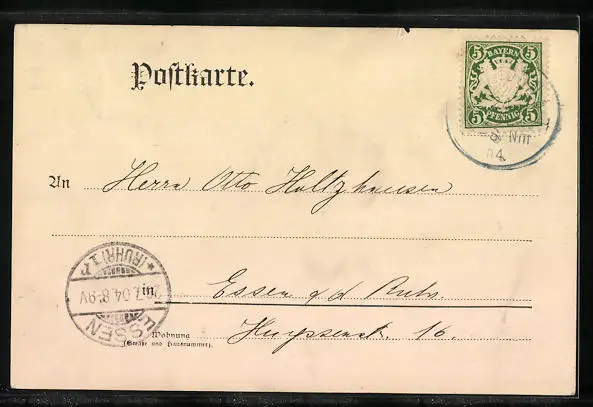 Postkarte.
5 BAYERN 5
5 PFENNIG 5
Nm
04
An Herrn Otto Holtzhausen
in Essen a/d Ruhr.
Huyssenstr. 16.
Wohnung
(Straße und Hausnummer).
ESSEN
7.04.8-9V
* (RUHR) 1